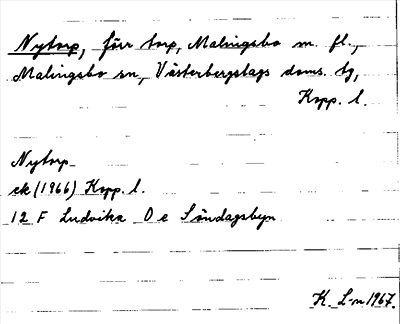 Nytorp, förr torp, Malingsbo m. fl.,
Malingsbo sn, Västerbergslags doms. tg,
Kopp. l.
Nytorp
ek (1966) Kopp. l.
12 F Ludvika 0 e Söndagsbyn
K. L-m 1967.